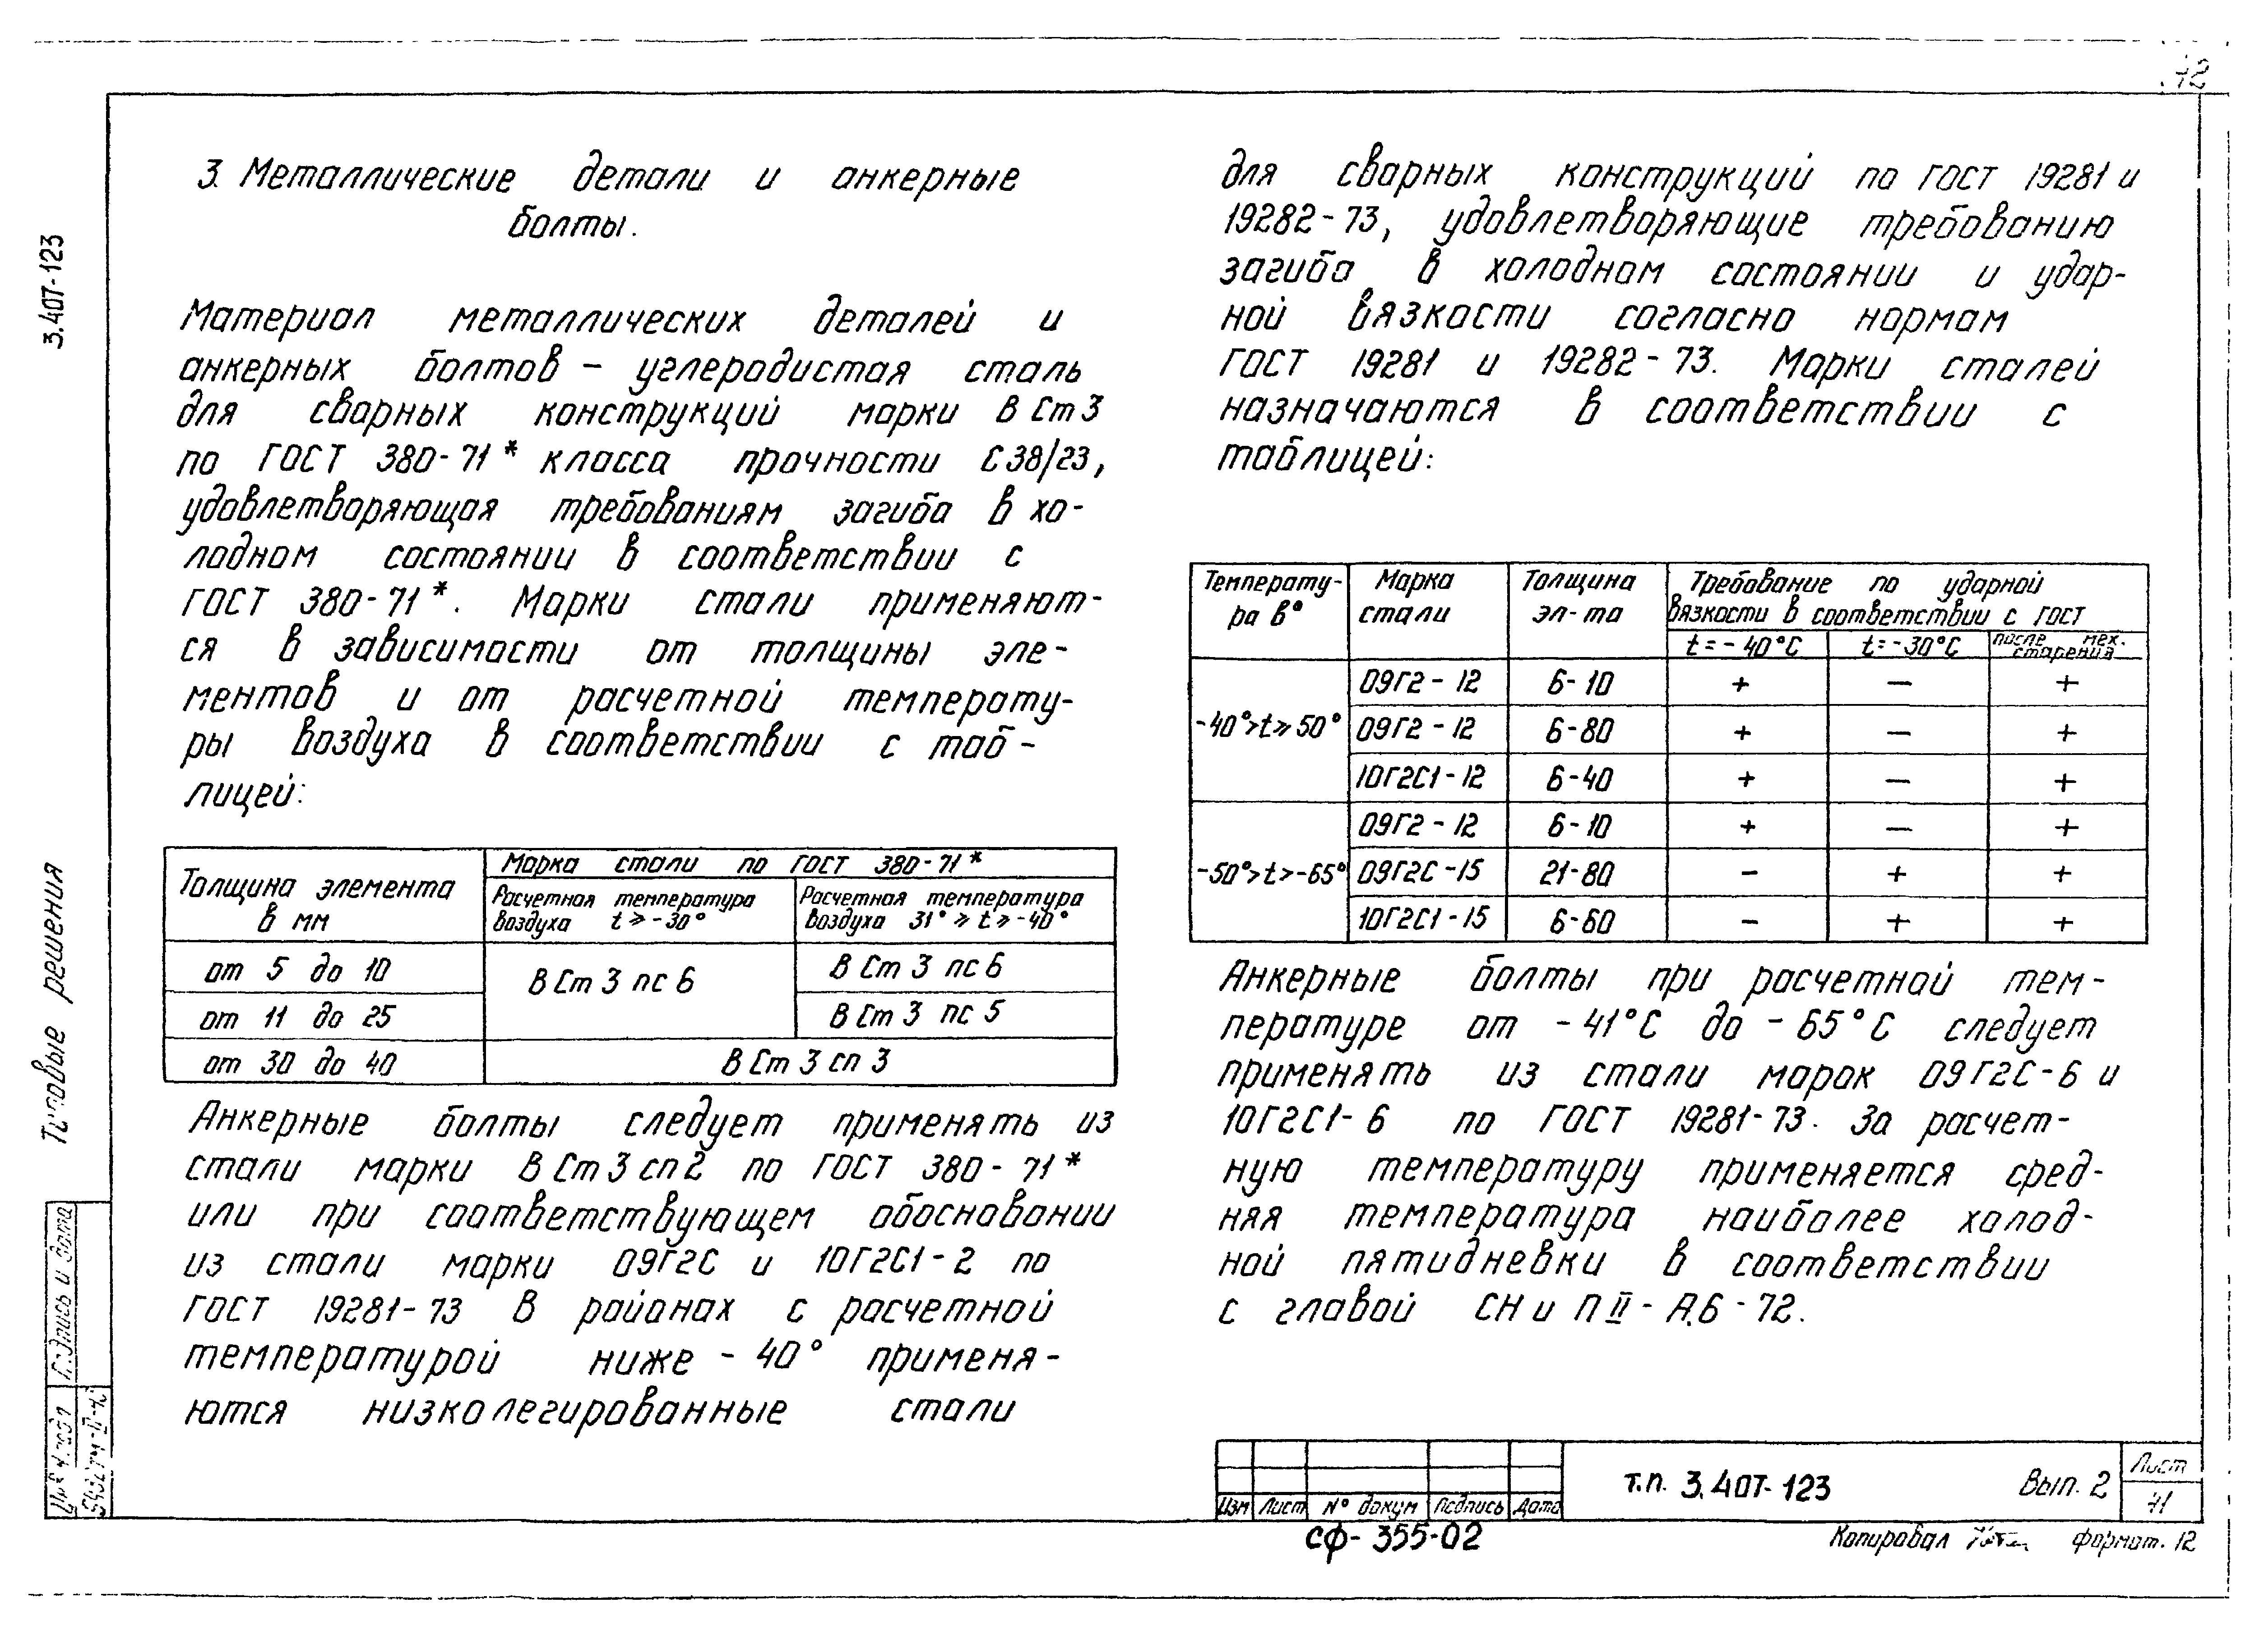 3. Металлические детали и анкерные
болты.
Материал металлических деталей и
анкерных болтов – углеродистая сталь
для сварных конструкций марки В Ст 3
по ГОСТ 380-71* класса прочности С 38/23,
удовлетворяющая требованиям загиба в хо-
лодном состоянии в соответствии с
ГОСТ 380-71*. Марки стали применяют-
ся в зависимости от толщины эле-
ментов и от расчетной температу-
ры воздуха в соответствии с таб-
лицей:
Толщина элемента
в мм
Марка стали по ГОСТ 380-71*
Расчетная температура
воздуха t ≥ -30°
Расчетная температура
воздуха 31° ≥ t ≥ -40°
от 5 до 10
В Ст 3 пс 6
В Ст 3 пс 6
от 11 до 25
В Ст 3 пс 5
от 30 до 40
В Ст 3 сп 3
Анкерные болты следует применять из
стали марки В Ст 3 сп 2 по ГОСТ 380-71*
или при соответствующем обосновании
из стали марки 09Г2С и 10Г2С1-2 по
ГОСТ 19281-73 В районах с расчетной
температурой ниже -40° применя-
ются низколегированные стали
для сварных конструкций по ГОСТ 19281 и
19282-73, удовлетворяющие требованию
загиба в холодном состоянии и удар-
ной вязкости согласно нормам
ГОСТ 19281 и 19282-73. Марки сталей
назначаются в соответствии с
таблицей:
Температу-
ра в°
Марка
стали
Толщина
эл-та
Требование по ударной
вязкости в соответствии с ГОСТ
t=-40°С
t=-30°С
после мех.
старения
-40°>t≥50°
09Г2-12 6-10 + – +
09Г2-12 6-80 + – +
10Г2С1-12 6-40 + – +
-50°>t>-65°
09Г2-12 6-10 + – +
09Г2С-15 21-80 – + +
10Г2С1-15 6-60 – + +
Анкерные болты при расчетной тем-
пературе от -41°С до -65°С следует
применять из стали марок 09Г2С-6 и
10Г2С1-6 по ГОСТ 19281-73. За расчет-
ную температуру применяется сред-
няя температура наиболее холод-
ной пятидневки в соответствии
с главой СН и П II-А.6-72.
3.407-123
Типовые решения
Подпись и дата
Изм Лист № докум Подпись Дата
т.п. 3.407-123
Вып. 2
Лист
41
СФ-355-02
Копировал
формат. 12